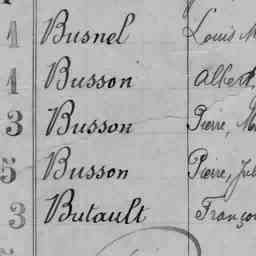 1 Busnel Louis M
1 Busson Albert,
3 Busson Pierre, Ma
5 Busson Pierre, Jul
3 Butault Franço